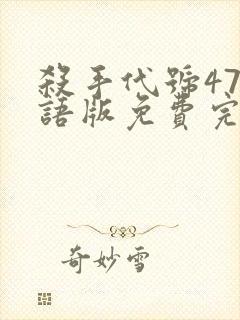 殺手代號47
語版免費完
奇妙雪